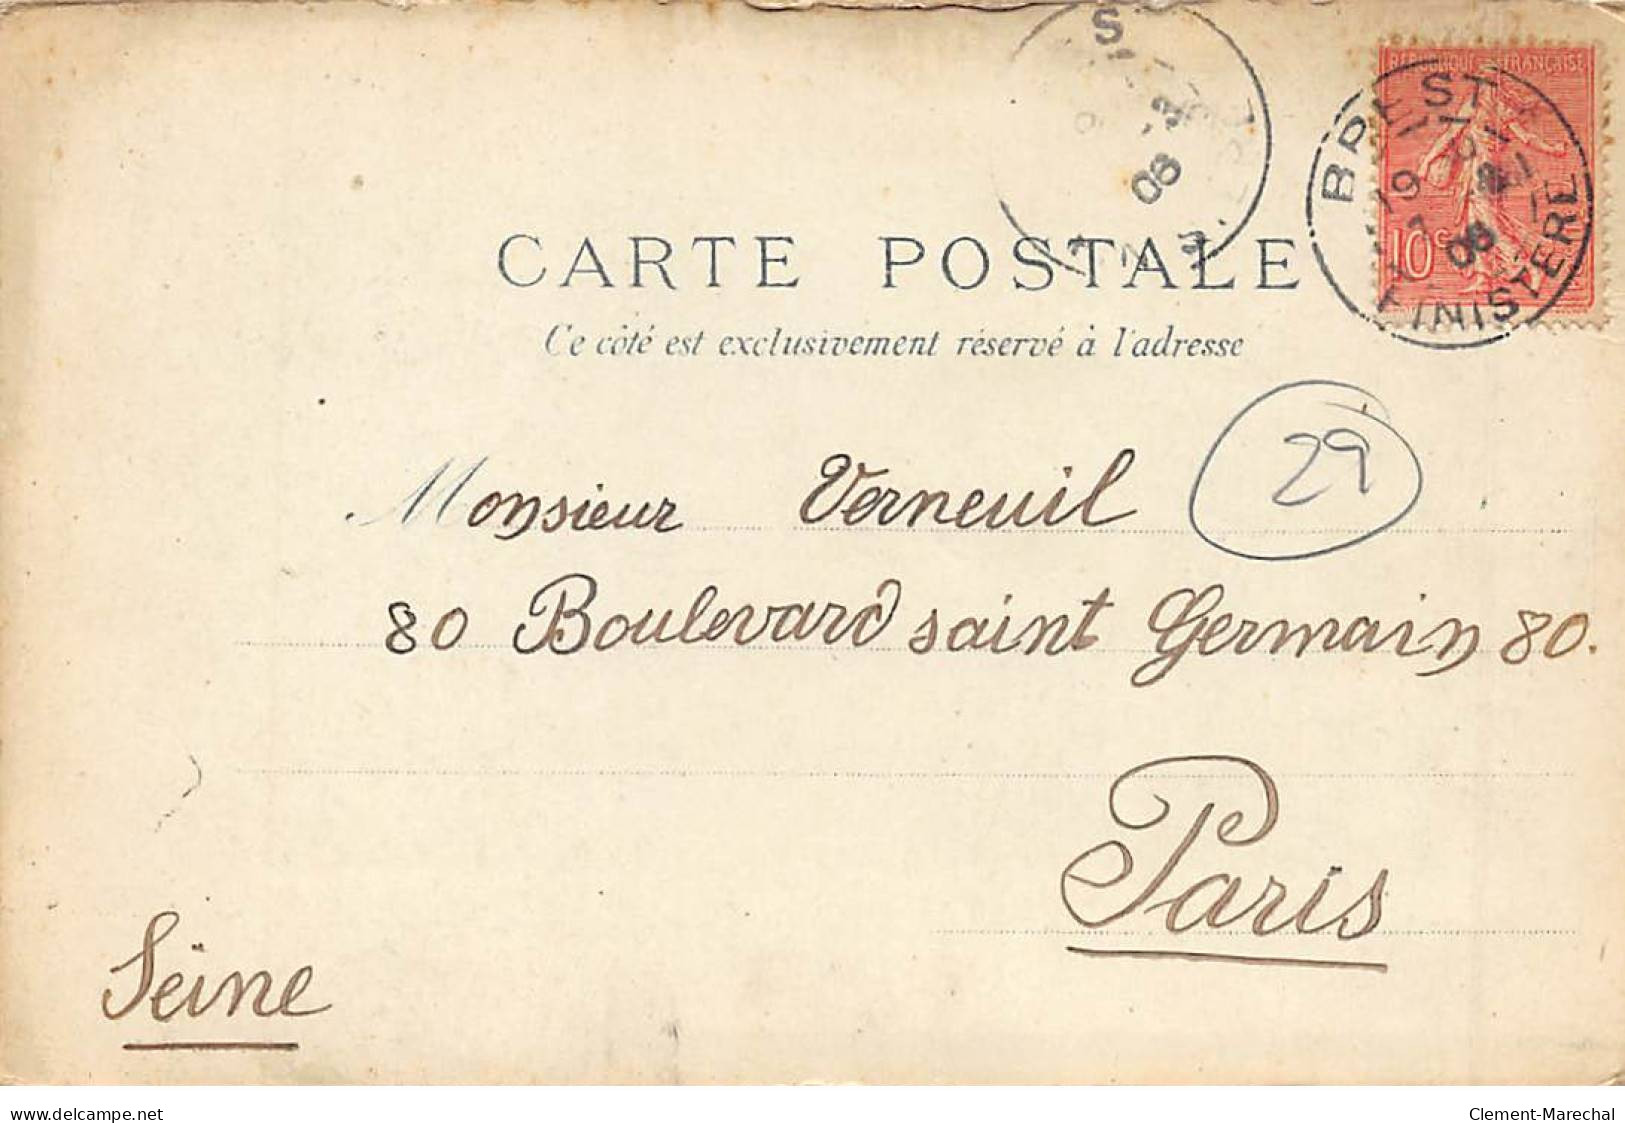 RÉPUBLIQUE FRANÇAISE
10 c
BREST
19
06
FINISTERE
06
CARTE POSTALE
Ce côté est exclusivement réservé à l'adresse
29
Monsieur Verneuil
80 Boulevard saint Germain 80.
Paris
Seine
www.delcampe.net
Clement-Marechal